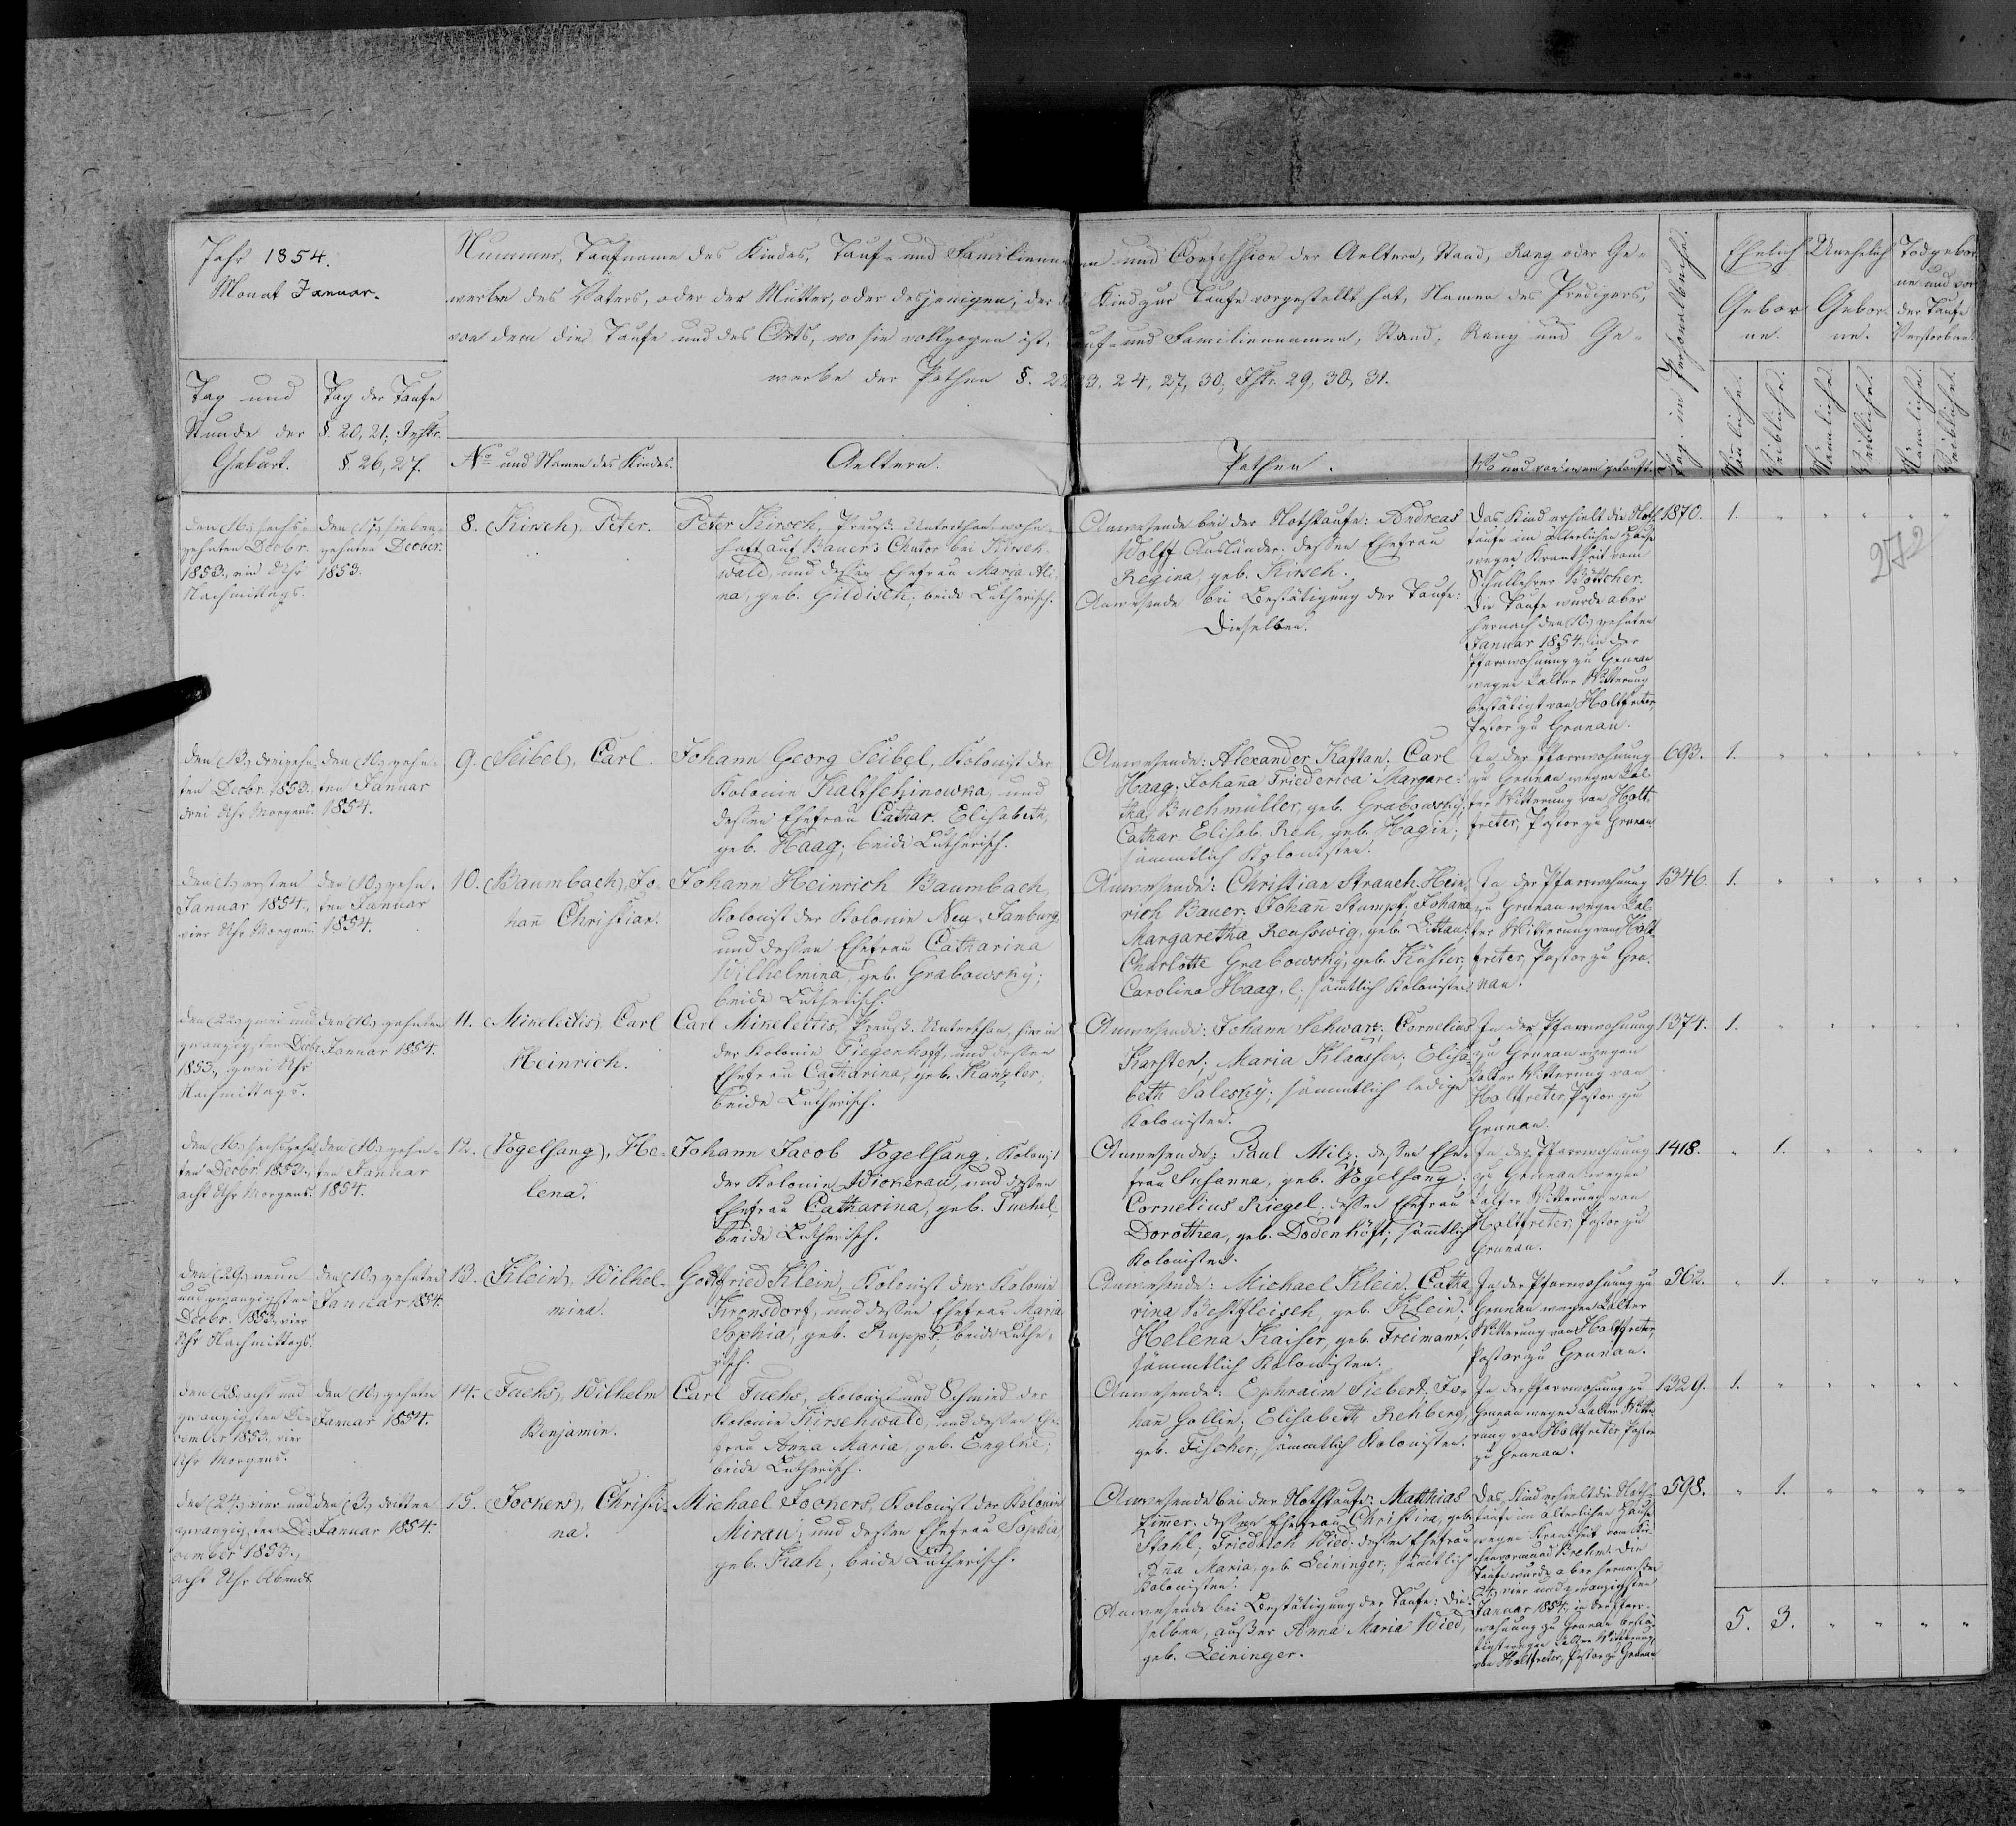 Jahr 1854.
Monat Januar.
Tag und
Stunde der
Geburt.
Tag der Taufe
§. 20, 21; Instr.
§. 26, 27.
Nummer, Taufname des Kindes, Tauf- und Familiennamen und Confession der Aeltern, Stand, Rang oder Ge-
werbe des Vaters, oder der Mutter, oder desjenigen, der das Kind zur Taufe vorgestellt hat, Namen des Predigers,
von dem die Taufe und des Orts, wo sie vollzogen ist, Tauf- und Familiennamen, Stand, Rang und Ge-
werbe der Pathen §. 22, 23, 24, 27, 30; Instr. 29, 30, 31.
No und Namen des Kindes.
Aeltern.
Pathen.
Wo und von wem getauft.
Pag. im Personalbuche.
Ehelich
Gebor
ne.
Unehelich
Gebor-
ne.
Todgebor
ne und vor
der Taufe
Verstorbene.
Männliche.
Weibliche.
Männliche.
Weibliche.
Männliche.
Weibliche.
272
den (16.) sechs-
zehnten Decbr.
1853., ein Uhr
Nachmittags.
den (17.) sieben-
zehnten Decber.
1853.
8. (Kirsch), Peter.
Peter Kirsch, Preuß. Unterthan, wohn-
haft auf Bauer's Chutor bei Kirsch-
wald, und dessen Ehefrau Maria Ali-
na, geb. Gildisch; beide Lutherisch.
Anwesende bei der Nothtaufe: Andreas
Wolff Ausländer. dessen Ehefrau
Regina, geb. Kirsch.
Anwesende bei Bestätigung der Taufe:
Dieselben.
Das Kind erhielt die Noth-
taufe im älterlichen Hause
wegen Krankheit vom
Schullehrer Böttcher.
Die Taufe wurde aber
hernach den (10.) zehnten
Januar 1854., in der
Pfarrwohnung zu Grunau
wegen kalter Witterung
bestätigt von Holtfreter,
Pastor zu Grunau.
1870. 1. " " " " "
den (13.) dreizehn-
ten Decbr. 1853.,
drei Uhr Morgens.
den (10.) zehn-
ten Januar
1854.
9. (Seibel), Carl.
Johann Georg Seibel, Kolonist der
Kolonie Kaltschinowka, und
dessen Ehefrau Cathar. Elisabeth,
geb. Haag; beide Lutherisch.
Anwesende: Alexander Kaftan; Carl
Haag; Johanna Friederica Margare-
tha Buchmüller, geb. Grabowsky;
Cathar. Elisab. Reh, geb. Hagin;
sämmtlich Kolonisten.
In der Pfarrwohnung
zu Grunau wegen kal-
ter Witterung von Holt-
freter, Pastor zu Grunau.
693. 1. " " " " "
den (1.) ersten
Januar 1854.,
vier Uhr Morgens.
den (10.) zehn-
ten Januar
1854.
10. (Baumbach), Jo-
hann Christian.
Johann Heinrich Baumbach,
Kolonist der Kolonie Neu-Jamburg,
und dessen Ehefrau Catharina
Wilhelmina, geb. Grabowsky;
beide Lutherisch.
Anwesende: Christian Strauch. Hein-
rich Bauer; Johann Stumpf. Johana
Margaretha Renswig, geb. Littau;
Charlotte Grabowsky, geb. Küster;
Carolina Haag, l; sämtlich Kolonisten
In der Pfarrwohnung
zu Grunau wegen kal-
ter Witterung von Holt-
freter, Pastor zu Gru-
nau.
1346. 1. " " " " "
den (22.) zwei und
zwanzigsten Decbr.
1853., zwei Uhr
Nachmittags.
den (10.) zehnten
Januar 1854.
11. (Mikeleitis), Carl
Heinrich.
Carl Mikeleitis, Preuß. Unterthan, hier in
der Kolonie Tiegenhoff, und dessen
Ehefrau Catharina, geb. Kanzler;
beide Lutherisch.
Anwesende: Johann Schwarz; Cornelius
Karsten; Maria Klaassen; Elisa-
beth Salesky; sämmtlich ledige
Kolonisten.
In der Pfarrwohnung
zu Grunau wegen
kalter Witterung von
Holtfreter, Pastor zu
Grunau.
1374. 1. " " " " "
den (16.) sechszehn-
ten Decbr. 1853.,
acht Uhr Morgens.
den (10.) zehn-
ten Januar
1854.
12. (Vogelsang), He-
lena.
Johann Jacob Vogelsang, Kolonist
der Kolonie Wickerau, und dessen
Ehefrau Catharina, geb. Tuchel;
beide Lutherisch.
Anwesende: Paul Milz; dessen Ehe-
frau Susanna, geb. Vogelsang;
Cornelius Riegel; dessen Ehefrau
Dorothea, geb. Dodenhöft; sämtlich
Kolonisten.
In der Pfarrwohnung
zu Grunau wegen
kalter Witterung von
Holtfreter, Pastor zu
Grunau.
1418. " 1. " " " "
den (29.) neun
und zwanzigsten
Decbr. 1853., vier
Uhr Nachmittags.
den (10.) zehnten
Januar 1854.
13. (Klein), Wilhel-
mina.
Gottfried Klein, Kolonist der Kolonie
Kronsdorf, und dessen Ehefrau Maria
Sophia, geb. Rupps; beide Luthe-
risch.
Anwesende: Michael Klein. Catha-
rina Bestfleisch, geb. Klein;
Helena Kaiser, geb. Freimann;
sämmtlich Kolonisten.
In der Pfarrwohnung zu
Grunau wegen kalter
Witterung von Holtfreter,
Pastor zu Grunau.
" 1. " " " "
den (28.) acht und
zwanzigsten De-
cember 1853., vier
Uhr Morgens.
den (10.) zehnten
Januar 1854.
14. (Fuchs), Wilhelm
Benjamin.
Carl Fuchs, Kolonist und Schmied der
Kolonie Kirschwald, und dessen Ehe-
frau Anna Maria, geb. Englke;
beide Lutherisch.
Anwesende: Ephraim Siebert; Jo-
hann Gollin; Elisabeth Rehberg,
geb. Fischer; sämmtlich Kolonisten.
In der Pfarrwohnung zu
Grunau wegen kalter Witte-
rung von Holtfreter, Pastor
zu Grunau.
1329. 1. " " " " "
den (24.) vier und
zwanzigsten De-
cember 1853.,
acht Uhr Abends.
den (3.) dritten
Januar 1854.
15. (Jockers), Christi-
na.
Michael Jockers, Kolonist der Kolonie
Mirau, und dessen Ehefrau Sophia,
geb. Kah; beide Lutherisch.
Anwesende bei der Nothtaufe: Matthias
Zimmer. dessen Ehefrau Christina, geb.
Stahl; Friedrich Wied; dessen Ehefrau
Anna Maria, geb. Leininger; sämtlich
Kolonisten.
Anwesende bei Bestätigung der Taufe: Die-
selben, außer Anna Maria Wied,
geb. Leininger.
Das Kind erhielt die Noth-
taufe im älterlichen Hause
wegen Krankheit vom Kir-
chenvormund Brehm. Die
Taufe wurde aber hernach den
(24.) vier und zwanzigsten
Januar 1854., in der Pfarr-
wohnung zu Grunau bestä-
tigt wegen kalter Witterung
von Holtfreter, Pastor zu Grunau
598. " 1. " " " "
5. 3. " " " "